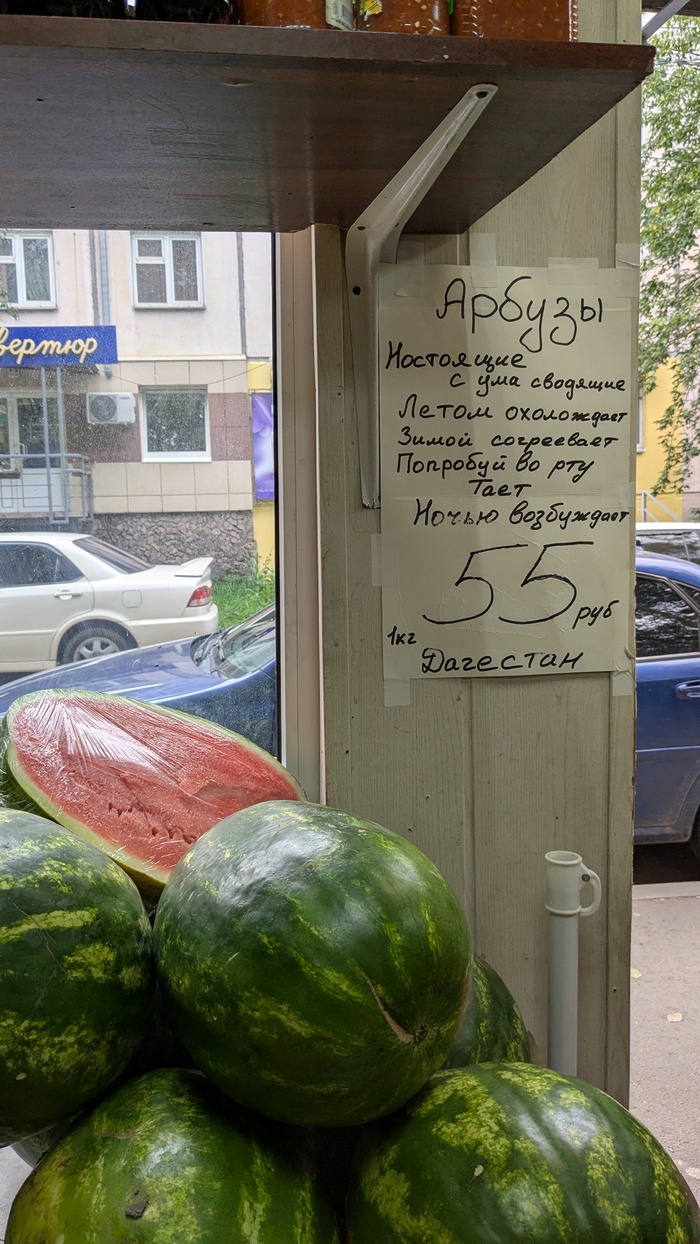 вертюр
Арбузы
Настоящие
с ума сводящие
Летом охолождает
Зимой согреевает
Попробуй во рту
Тает
Ночью возбуждает
55 руб
1кг
Дагестан